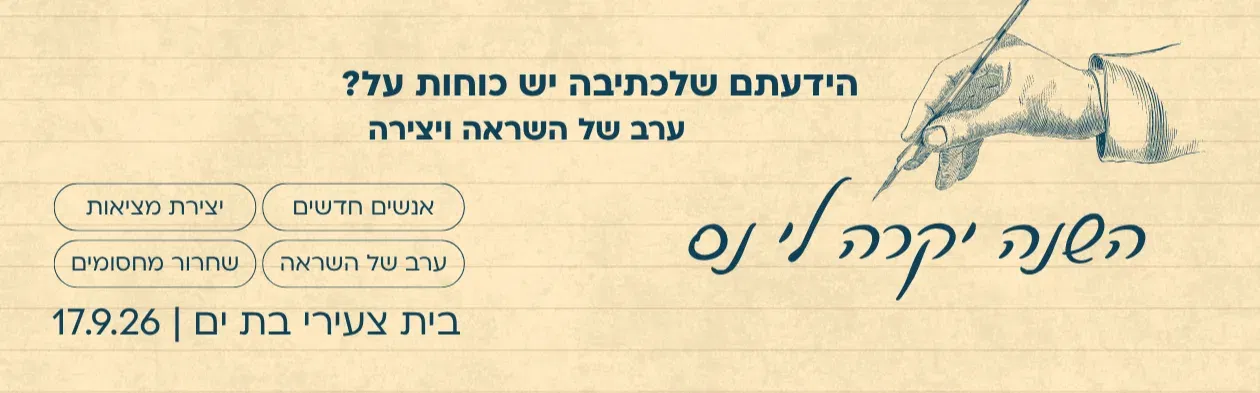 הידעתם שלכתיבה יש כוחות על?
ערב של השראה ויצירה
השנה יקרה לי נס
אנשים חדשים
יצירת מציאות
ערב של השראה
שחרור מחסומים
בית צעירי בת ים | 17.9.26